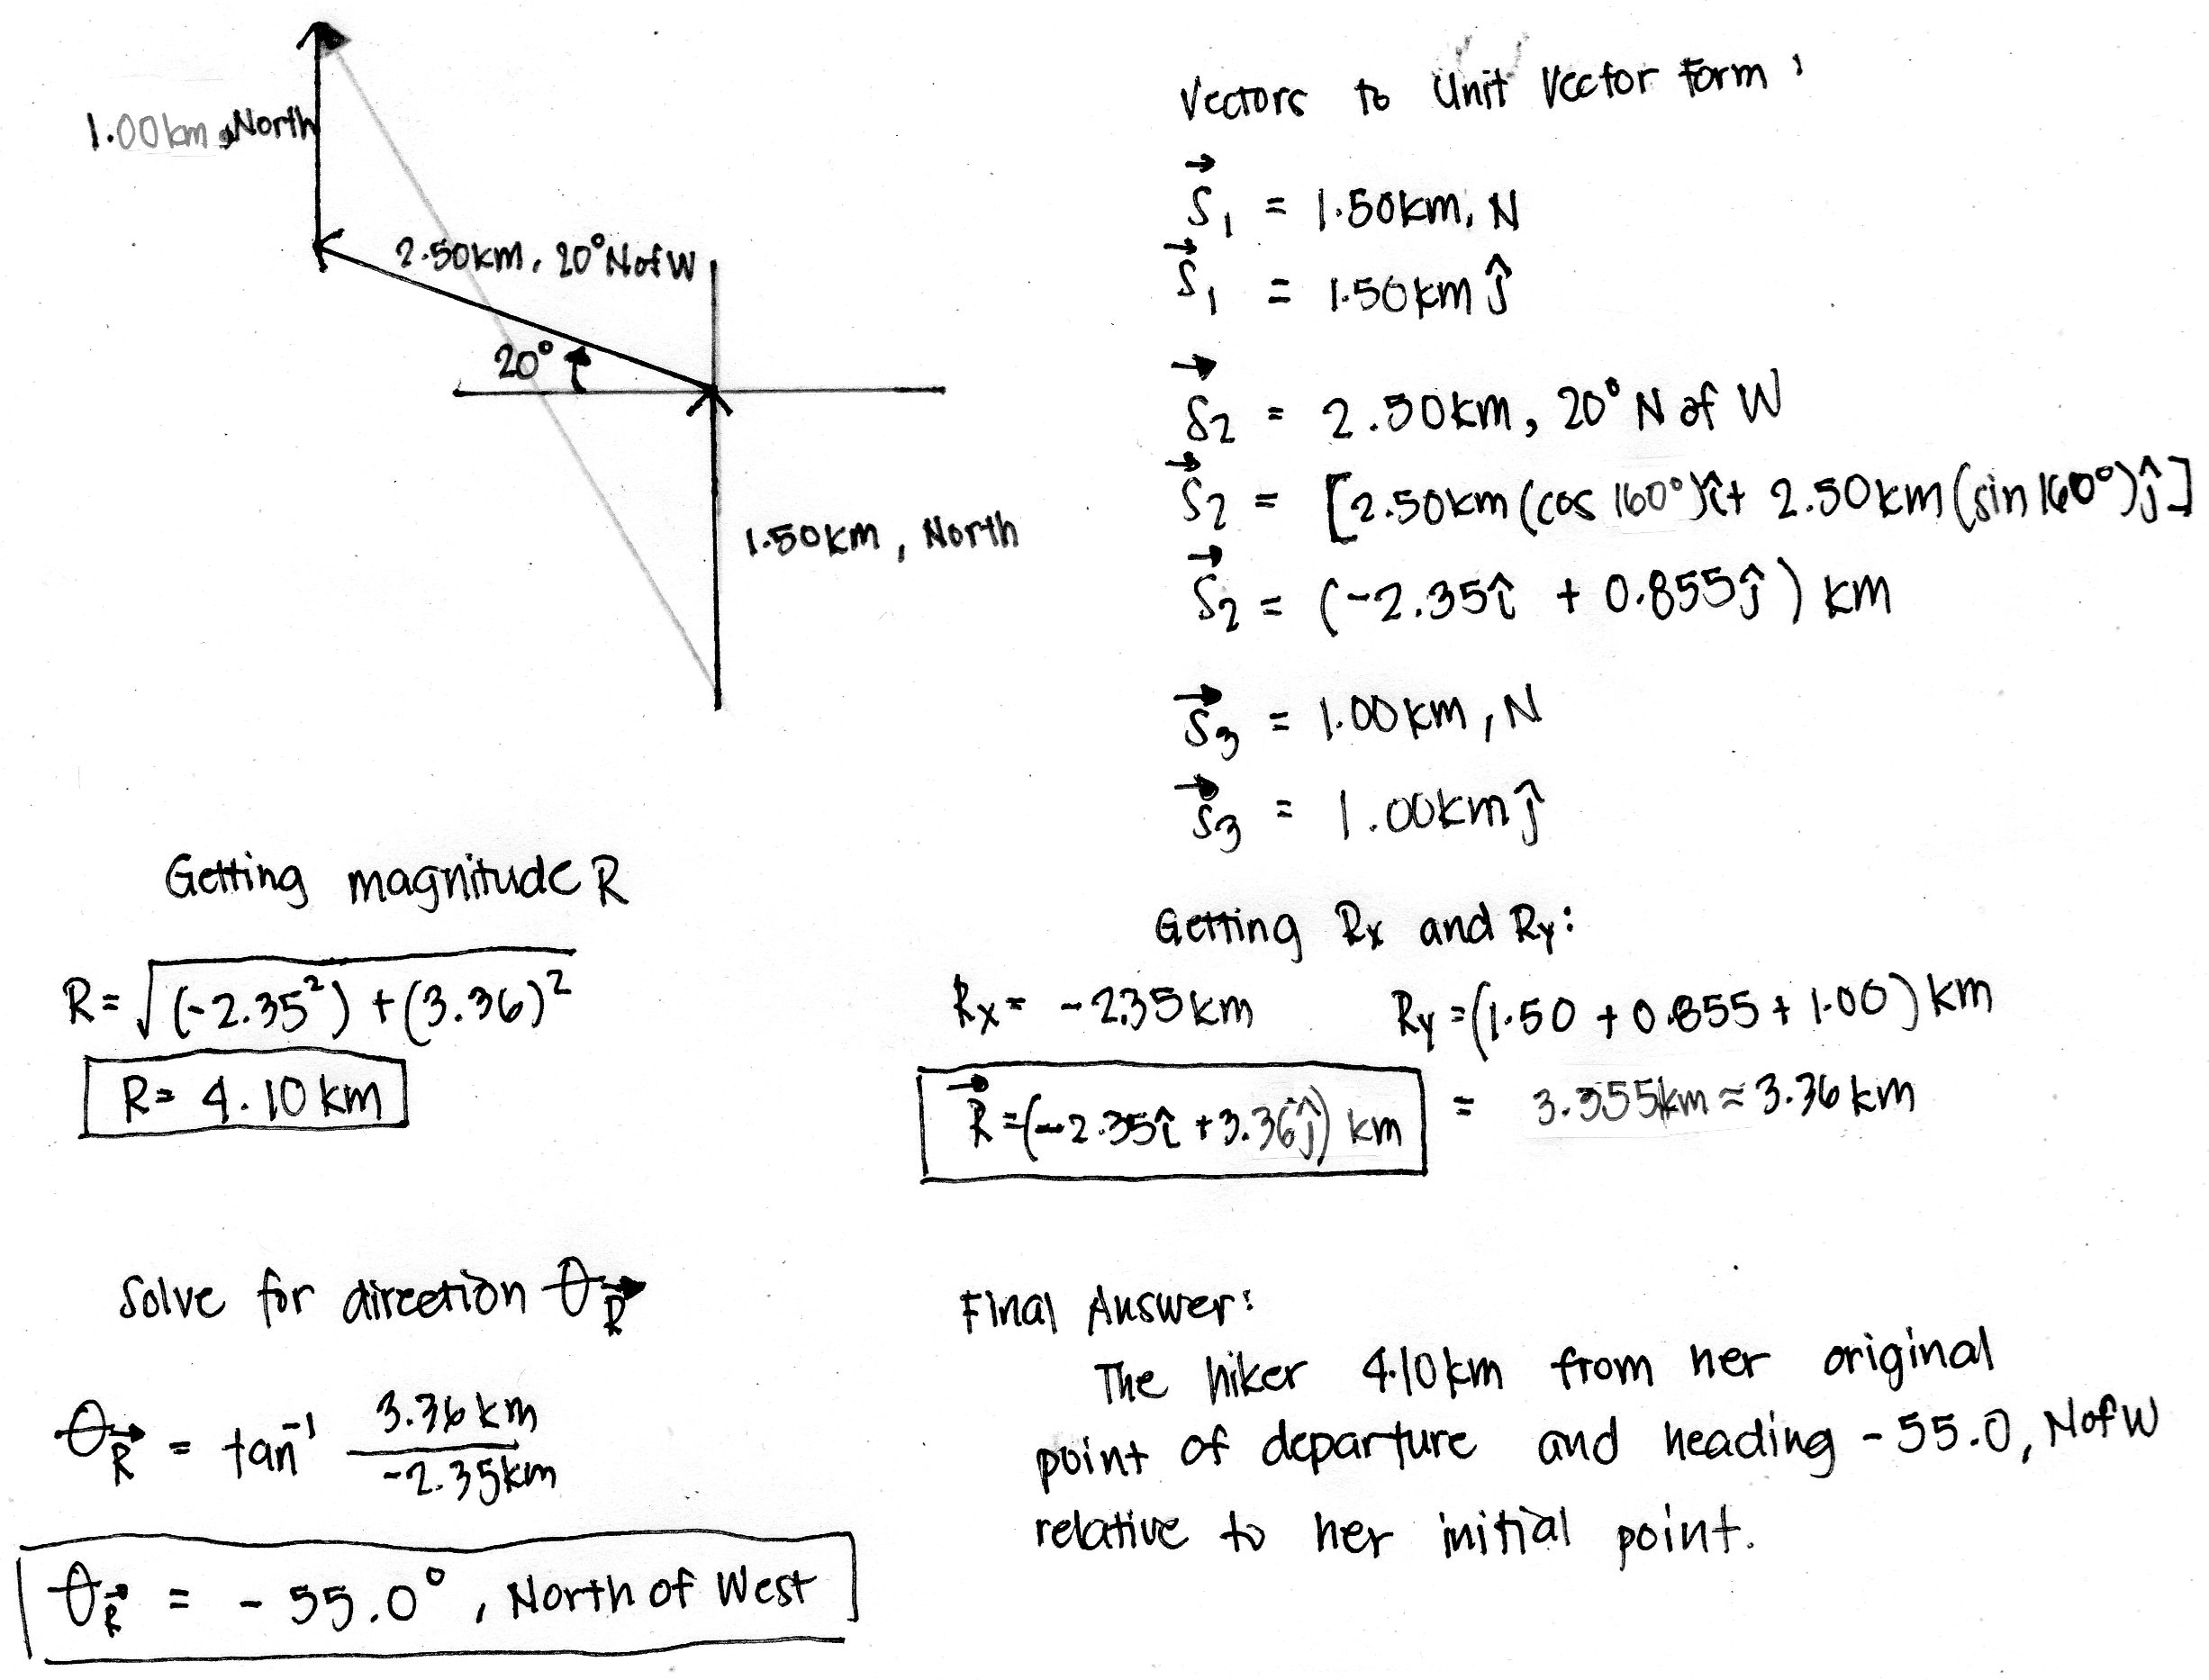 1.00km, North
2.50km, 20° N of W
20°
1.50km, North
Vectors to Unit Vector Form:
S⃗₁ = 1.50km, N
S⃗₁ = 1.50km ĵ
S⃗₂ = 2.50km, 20° N of W
S⃗₂ = [2.50km (cos 160°)î + 2.50km (sin 160°)ĵ]
S⃗₂ = (-2.35î + 0.855ĵ) km
S⃗₃ = 1.00km, N
S⃗₃ = 1.00km ĵ
Getting magnitude R
R = √(-2.35²) + (3.36)²
R = 4.10 km
Getting Rx and Ry:
Rx = -2.35km Ry = (1.50 + 0.855 + 1.00) km
R⃗ = (-2.35î + 3.36ĵ) km = 3.355km ≈ 3.36 km
Solve for direction θR⃗
θR⃗ = tan⁻¹ 3.36 km
-2.35km
θR⃗ = - 55.0°, North of West
Final Answer:
The hiker 4.10km from her original
point of departure and heading -55.0, N of W
relative to her initial point.